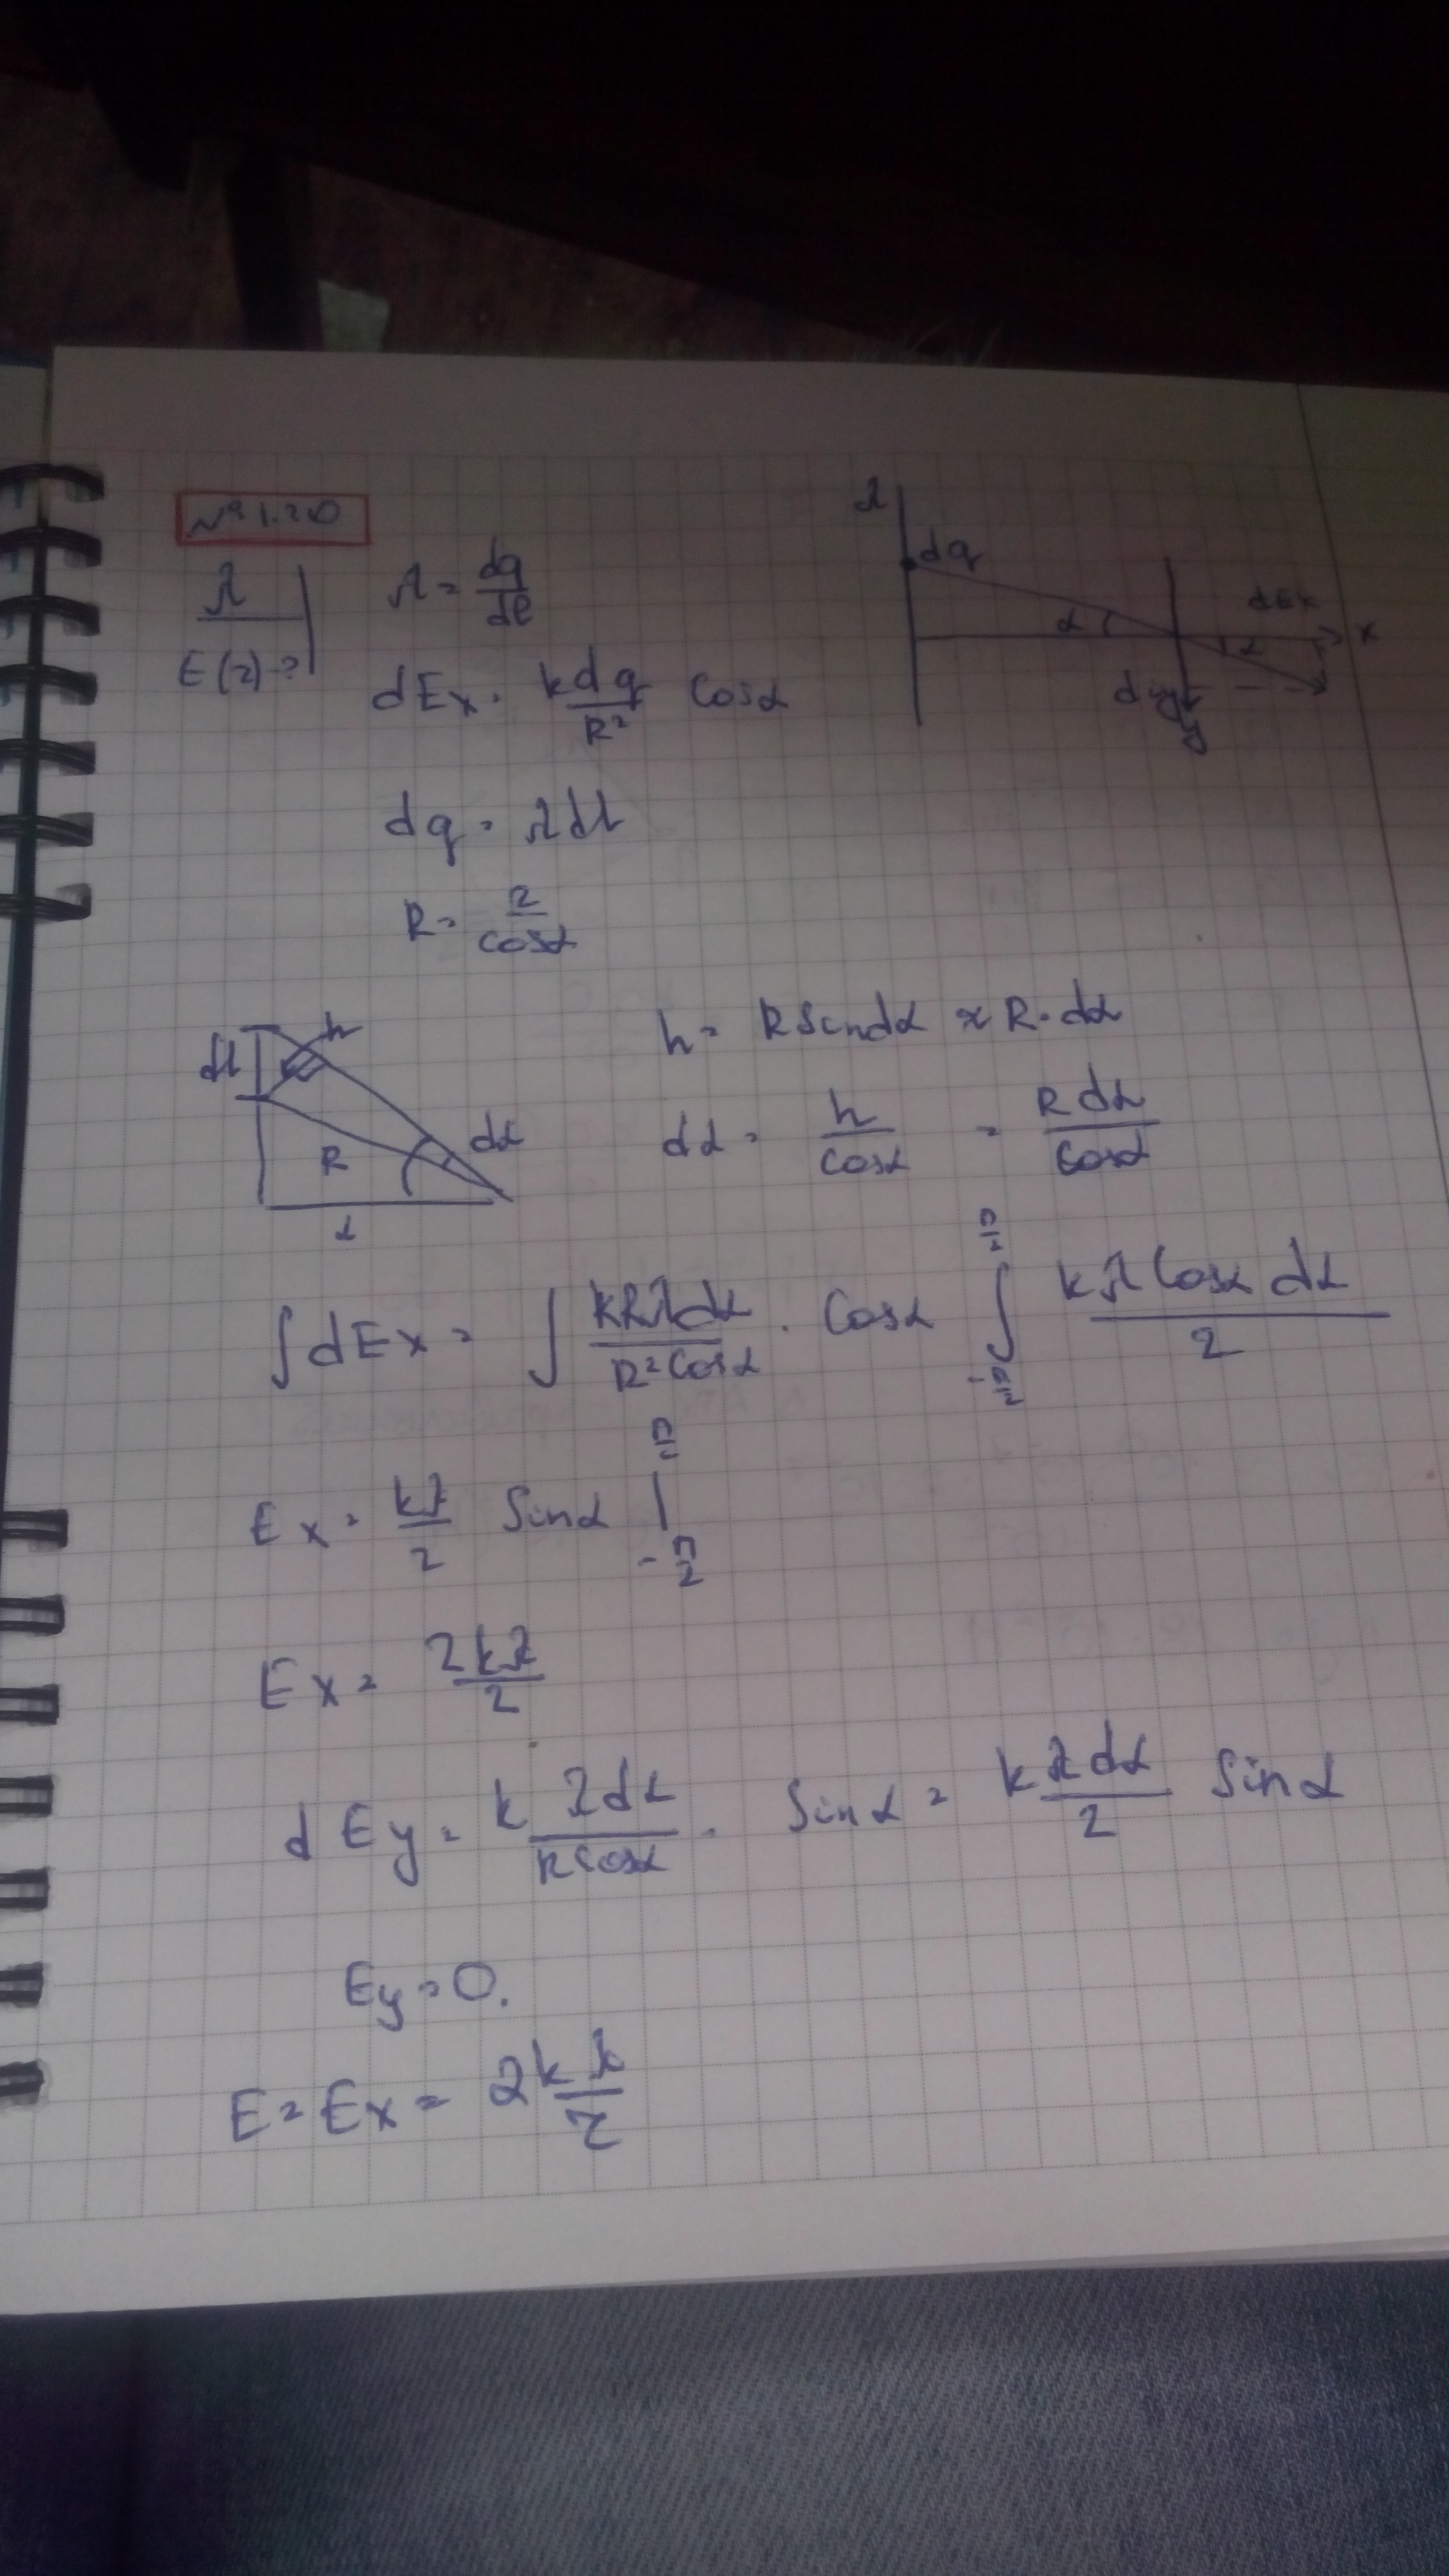 № 1.20
λ
E(r)-?
λ = dq/dl
dEx = kdq/R² cosα
dq = λdl
R = r/cosα
λ
dq
α
dEx
x
α
y
dl
h
R
dα
h = R sindα ≈ R·dα
dα = h/cosα = Rdα/cosα
∫dEx = ∫ kRλdα/R²cosα · cosα ∫_{-π/2}^{π/2} kλcosα dα/r
Ex = kλ/r sinα |_{-π/2}^{π/2}
Ex = 2kλ/r
dEy = k λdα/Rcosα · sinα = kλdα/r sinα
Ey = 0.
E = Ex = 2kλ/r